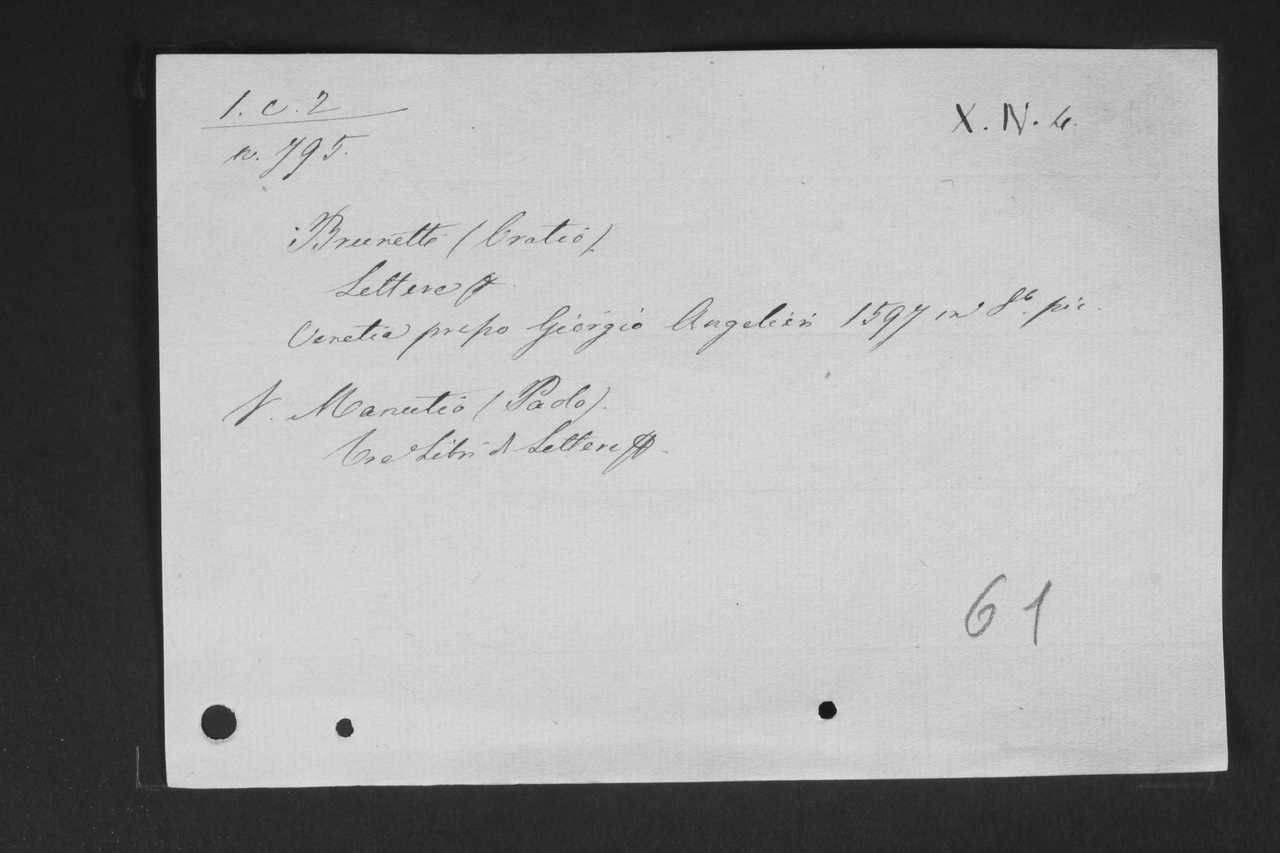 1. c. 2
n. 795.
X. IV. 4.
Brunetto (Oratio).
Lettere
Venetia presso Giorgio Angelieri 1597 in 8º. pic.
V. Manutio (Paolo).
Tre Libri di Lettere
61